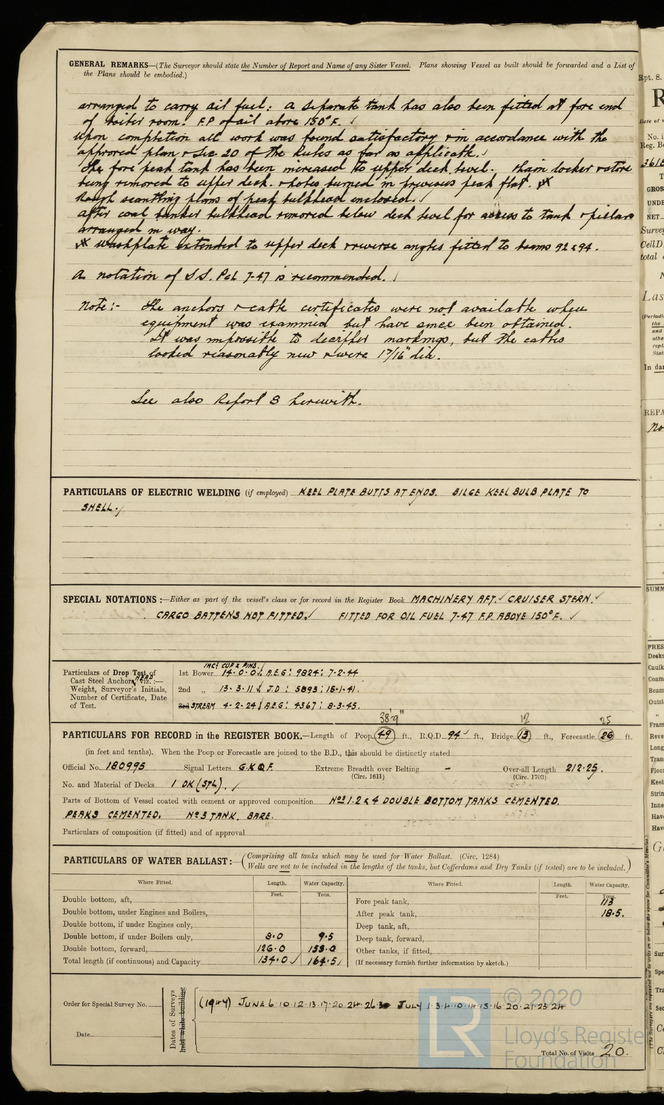 GENERAL REMARKS—(The Surveyor should state the Number of Report and Name of any Sister Vessel. Plans showing Vessel as built should be forwarded and a List of
the Plans should be embodied.)
arranged to carry oil fuel: a separate tank has also been fitted at fore end
of boiler room. F.P of oil above 150°F. ✓
Upon completion all work was found satisfactory & in accordance with the
approved plan & Sec 20 of the Rules as far as applicable.
The fore peak tank has been increased to upper deck level. Chain locker & store
being removed to upper deck. & holes burned in previous peak flat.
Rough scantling plans of peak bulkhead enclosed.
After coal bunker bulkhead removed below deck level for access to tank & pillars
arranged in way.
washplate extended to upper deck & reverse angles fitted to beams 92 & 94.
A notation of S.S. Pel 7-47 is recommended.
Note:- The anchors & cable certificates were not available when
equipment was examined but have since been obtained.
It was impossible to decipher markings, but the cables
looked reasonably new & were 1 7/16" dia.
See also Report 8 herewith.
PARTICULARS OF ELECTRIC WELDING (if employed) KEEL PLATE BUTTS AT ENDS. BILGE KEEL BULB PLATE TO
SHELL.
SPECIAL NOTATIONS:—Either as part of the vessel's class or for record in the Register Book MACHINERY AFT. ✓ CRUISER STERN. ✓
CARGO BATTENS NOT FITTED. ✓ FITTED FOR OIL FUEL 7-47 F.P. ABOVE 150°F. ✓
Particulars of Drop Test of
Cast Steel Anchors, viz.:—
Weight, Surveyor's Initials,
Number of Certificate, Date
of Test.
INCL CUP & PINS.
1st Bower 14-0-0 A.E.G: 9824: 7-2-44
2nd „ 13-3-11 J.D: 5893: 15-1-41.
3rd STREAM 4-2-24 A.E.G: 4367: 8-3-45.
38'9" 12 25
PARTICULARS FOR RECORD in the REGISTER BOOK.—Length of Poop 49 ft., R.Q.D. 94 ft., Bridge 13 ft., Forecastle 26 ft.
(in feet and tenths). When the Poop or Forecastle are joined to the B.D., this should be distinctly stated
Official No. 180995 Signal Letters G.K.Q.F. Extreme Breadth over Belting - Over-all Length 212.25.
(Circ. 1611) (Circ. 1703)
No. and Material of Decks 1 DK (STL). ✓
Parts of Bottom of Vessel coated with cement or approved composition NOS 1.2 & 4 DOUBLE BOTTOM TANKS CEMENTED.
PEAKS CEMENTED. NO 3 TANK. BARE.
Particulars of composition (if fitted) and of approval
PARTICULARS OF WATER BALLAST:—(Comprising all tanks which may be used for Water Ballast. (Circ. 1284)
Wells are not to be included in the lengths of the tanks, but Cofferdams and Dry Tanks (if tested) are to be included.)
Where Fitted. Length. Water Capacity. Where Fitted. Length. Water Capacity.
Feet. Tons. Feet. Tons.
Double bottom, aft, Fore peak tank, 113
Double bottom, under Engines and Boilers, After peak tank, 18.5.
Double bottom, if under Engines only, Deep tank, aft,
Double bottom, if under Boilers only, 8.0 9.5 Deep tank, forward,
Double bottom, forward, 126.0 155.0 Other tanks, if fitted,
Total length (if continuous) and Capacity 134.0 164.5 (If necessary furnish further information by sketch.)
Order for Special Survey No.
Date
Dates of Surveys
held while building
(1947) JUNE 6.10.12.13.17.20.24.26.30 JULY 1.3.4.10.14.15.16.20.21.25.24
Total No. of Visits 20.
© 2020
LR
Lloyd's Register
Foundation